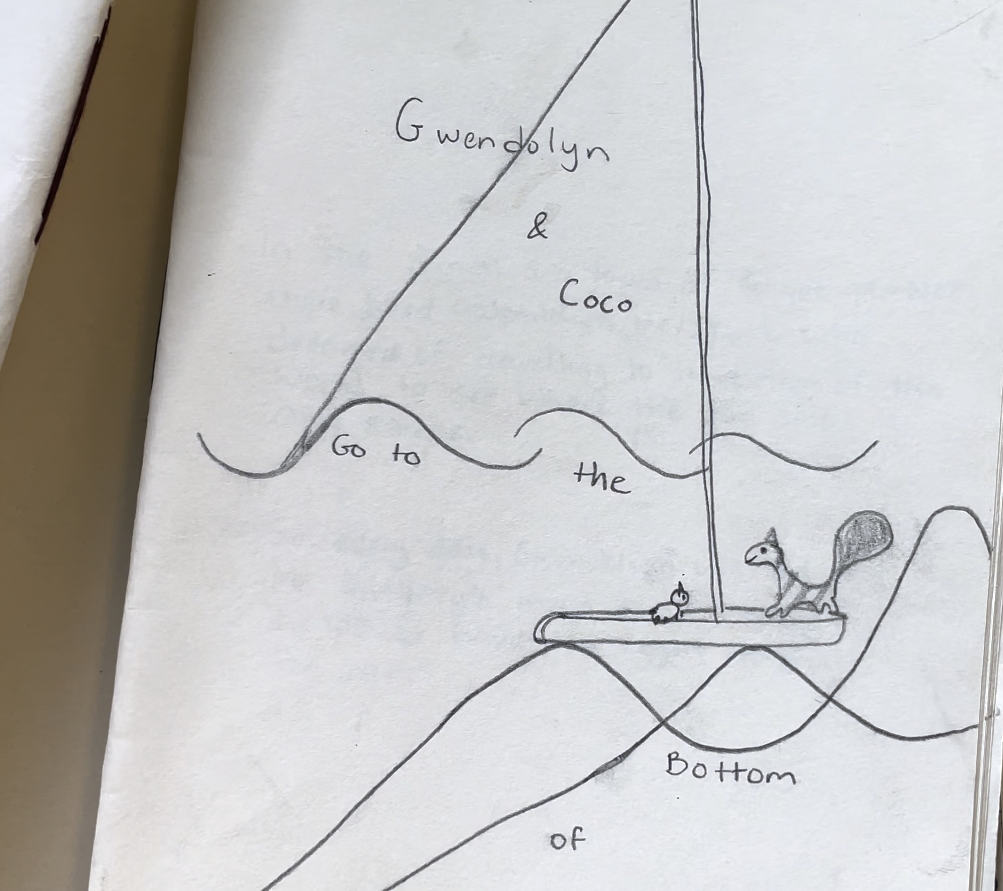 Gwendolyn
&
Coco
Go to
the
Bottom
of